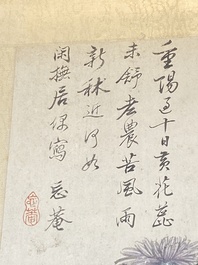 重陽過十日黃花蕊
未舒老農苦風雨
新秫近何如
閑撫居偶寫 忍菴